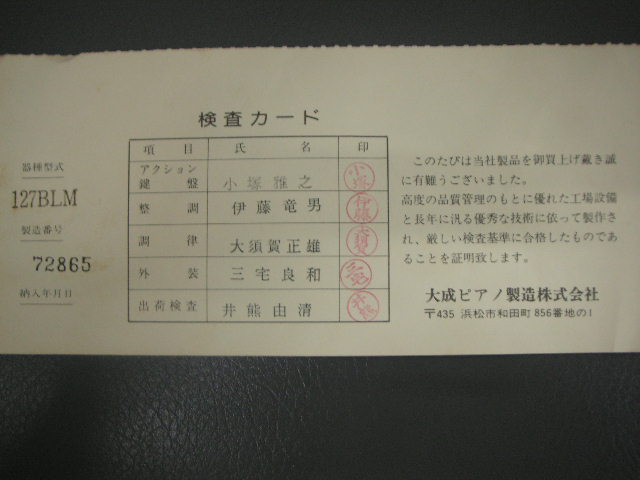 検査カード
器種型式
127BLM
製造番号
72865
納入年月日
項目 氏名 印
アクション
鍵盤 小塚雅之 小塚
整調 伊藤竜男 伊藤
調律 大須賀正雄
外装 三宅良和 三宅
出荷検査 井熊由清 井熊
このたびは当社製品を御買上げ戴き誠
に有難うございました。
高度の品質管理のもとに優れた工場設備
と長年に汎る優秀な技術に依って製作さ
れ、厳しい検査基準に合格したものであ
ることを証明致します。
大成ピアノ製造株式会社
〒435 浜松市和田町856番地の1